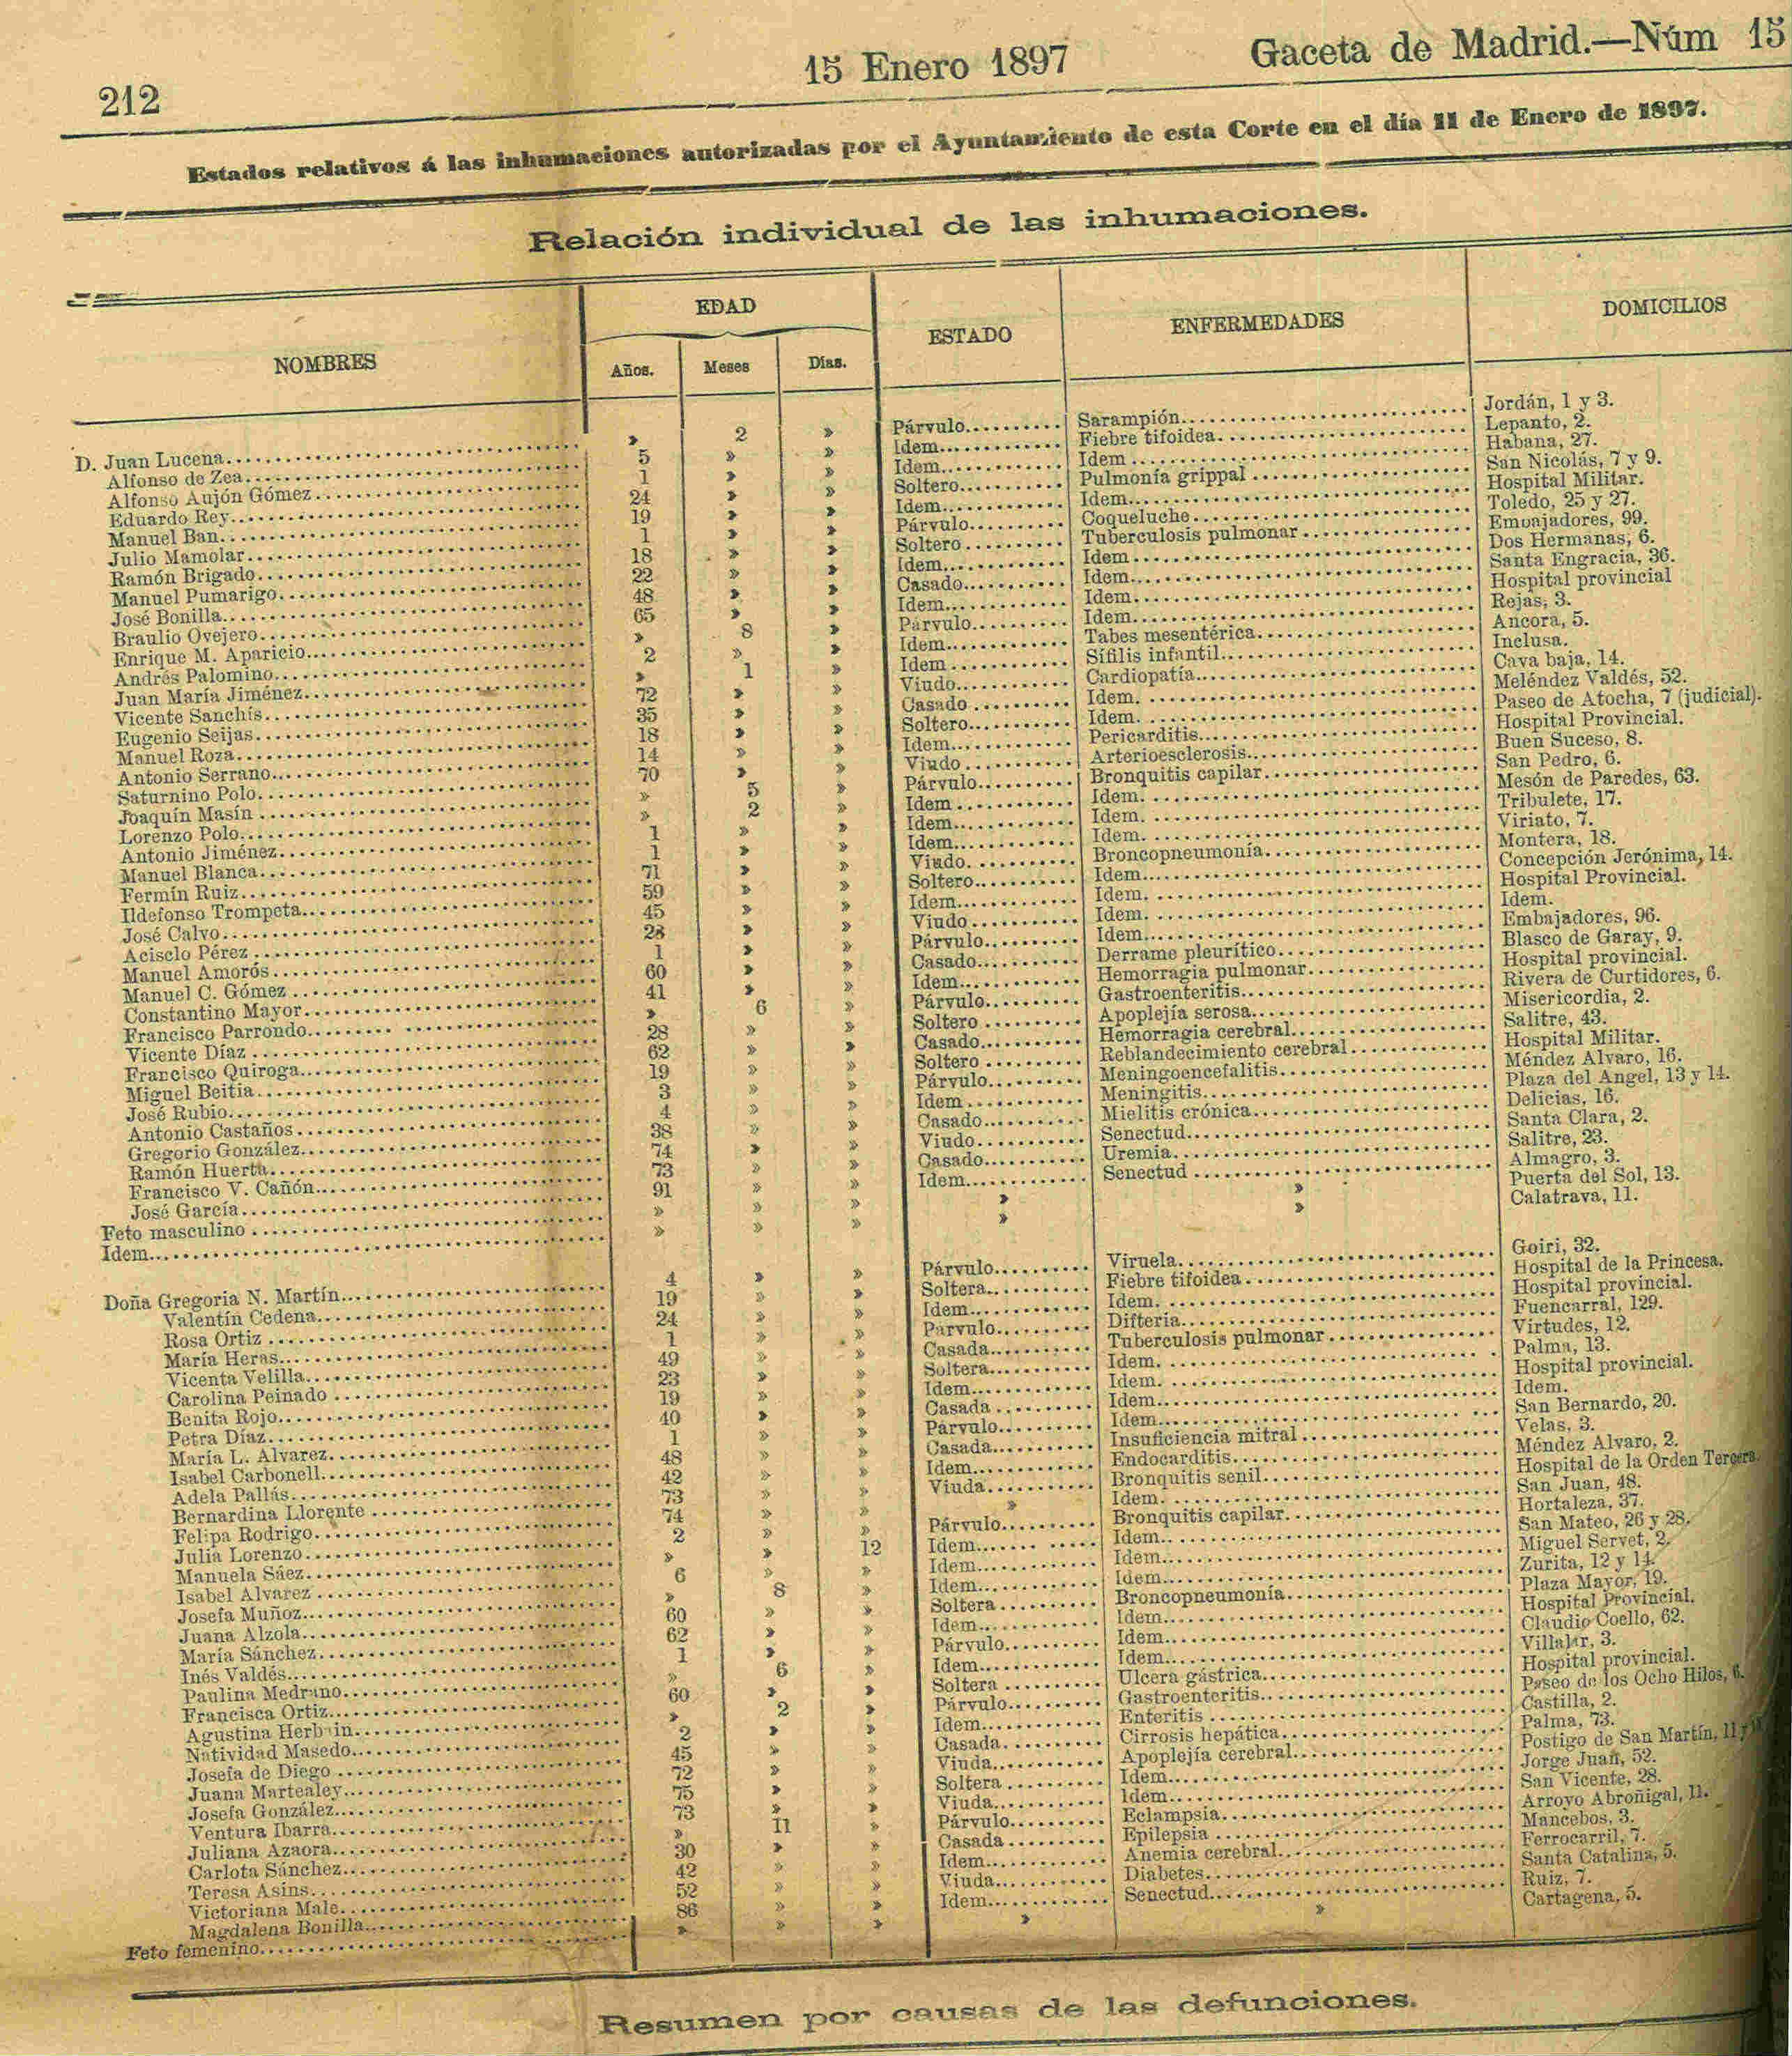 212 15 Enero 1897 Gaceta de Madrid.—Núm 15
Estados relativos á las inhumaciones autorizadas por el Ayuntamiento de esta Corte en el día 11 de Enero de 1897.
Relación individual de las inhumaciones.
NOMBRES EDAD ESTADO ENFERMEDADES DOMICILIOS
Años. Meses Días.
D. Juan Lucena » 2 » Párvulo Sarampión Jordán, 1 y 3.
Alfonso de Zea 5 » » Idem Fiebre tifoidea Lepanto, 2.
Alfonso Aujón Gómez 1 » » Idem Idem Habana, 27.
Eduardo Rey 24 » » Soltero Pulmonía grippal San Nicolás, 7 y 9.
Manuel Ban 19 » » Idem Idem Hospital Militar.
Julio Mamolar 1 » » Párvulo Coqueluche Toledo, 25 y 27.
Ramón Brigado 18 » » Soltero Tuberculosis pulmonar Embajadores, 99.
Manuel Pumarigo 22 » » Idem Idem Dos Hermanas, 6.
José Bonilla 48 » » Casado Idem Santa Engracia, 36.
Braulio Ovejero 65 » » Idem Idem Hospital provincial
Enrique M. Aparicio » 8 » Párvulo Idem Rejas, 3.
Andrés Palomino 2 » » Idem Tabes mesentérica Ancora, 5.
Juan María Jiménez » 1 » Idem Sífilis infantil Inclusa.
Vicente Sanchís 72 » » Viudo Cardiopatía Cava baja, 14.
Eugenio Seijas 35 » » Casado Idem Meléndez Valdés, 52.
Manuel Roza 18 » » Soltero Idem Paseo de Atocha, 7 (judicial).
Antonio Serrano 14 » » Idem Pericarditis Hospital Provincial.
Saturnino Polo 70 » » Viudo Arterioesclerosis Buen Suceso, 8.
Joaquín Masín » 5 » Párvulo Bronquitis capilar San Pedro, 6.
Lorenzo Polo » 2 » Idem Idem Mesón de Paredes, 63.
Antonio Jiménez 1 » » Idem Idem Tribulete, 17.
Manuel Blanca 1 » » Idem Idem Viriato, 7.
Fermín Ruiz 71 » » Viudo Broncopneumonía Montera, 18.
Ildefonso Trompeta 59 » » Soltero Idem Concepción Jerónima, 14.
José Calvo 45 » » Idem Idem Hospital Provincial.
Acisclo Pérez 28 » » Viudo Idem Idem.
Manuel Amorós 1 » » Párvulo Idem Embajadores, 96.
Manuel C. Gómez 60 » » Casado Derrame pleurítico Blasco de Garay, 9.
Constantino Mayor 41 » » Idem Hemorragia pulmonar Hospital provincial.
Francisco Parrondo » 6 » Párvulo Gastroenteritis Rivera de Curtidores, 6.
Vicente Díaz 28 » » Soltero Apoplejía serosa Misericordia, 2.
Francisco Quiroga 62 » » Casado Hemorragia cerebral Salitre, 43.
Miguel Beitia 19 » » Soltero Reblandecimiento cerebral Hospital Militar.
José Rubio 3 » » Párvulo Meningoencefalitis Méndez Alvaro, 16.
Antonio Castaños 4 » » Idem Meningitis Plaza del Angel, 13 y 14.
Gregorio González 38 » » Casado Mielitis crónica Delicias, 16.
Ramón Huerta 74 » » Viudo Senectud Santa Clara, 2.
Francisco V. Cañón 73 » » Casado Uremia Salitre, 23.
José García 91 » » Idem Senectud Almagro, 3.
Feto masculino » » » » » Puerta del Sol, 13.
Idem » » » » » Calatrava, 11.
Doña Gregoria N. Martín 4 » » Párvulo Viruela Goiri, 32.
Valentín Cedena 19 » » Soltera Fiebre tifoidea Hospital de la Princesa.
Rosa Ortiz 24 » » Idem Idem Hospital provincial.
María Heras 1 » » Párvulo Difteria Fuencarral, 129.
Vicenta Velilla 49 » » Casada Tuberculosis pulmonar Virtudes, 12.
Carolina Peinado 23 » » Soltera Idem Palma, 13.
Benita Rojo 19 » » Idem Idem Hospital provincial.
Petra Díaz 40 » » Casada Idem Idem.
María L. Alvarez 1 » » Párvulo Idem San Bernardo, 20.
Isabel Carbonell 48 » » Casada Insuficiencia mitral Velas, 3.
Adela Pallás 42 » » Idem Endocarditis Méndez Alvaro, 2.
Bernardina Llorente 73 » » Viuda Bronquitis senil Hospital de la Orden Tercera.
Felipa Rodrigo 74 » » » Idem San Juan, 48.
Julia Lorenzo 2 » » Párvulo Bronquitis capilar Hortaleza, 37.
Manuela Sáez » » 12 Idem Idem San Mateo, 26 y 28.
Isabel Alvarez 6 » » Idem Idem Miguel Servet, 2.
Josefa Muñoz » 8 » Idem Idem Zurita, 12 y 14.
Juana Alzola 60 » » Soltera Broncopneumonía Plaza Mayor, 19.
María Sánchez 62 » » Idem Idem Hospital Provincial.
Inés Valdés 1 » » Párvulo Idem Claudio Coello, 62.
Paulina Medrano » 6 » Idem Idem Villalar, 3.
Francisca Ortiz 60 » » Soltera Ulcera gástrica Hospital provincial.
Agustina » 2 » Párvulo Gastroenteritis Paseo de los Ocho Hilos, 6.
Natividad Masedo 2 » » Idem Enteritis Castilla, 2.
Josefa de Diego 45 » » Casada Cirrosis hepática Palma, 73.
Juana Martealey 72 » » Viuda Apoplejía cerebral Postigo de San Martín, 11 y
Josefa González 75 » » Soltera Idem Jorge Juan, 52.
Ventura Ibarra 73 » » Viuda Idem San Vicente, 28.
Juliana Azaora » 11 » Párvulo Eclampsia Arroyo Abroñigal, 11.
Carlota Sánchez 30 » » Casada Epilepsia Mancebos, 3.
Teresa Asins 42 » » Idem Anemia cerebral Ferrocarril, 7.
Victoriana Male 52 » » Viuda Diabetes Santa Catalina, 5.
Magdalena Bonilla 86 » » Idem Senectud Ruiz, 7.
Feto femenino » » » » » Cartagena, 5.
Resumen por causas de las defunciones.